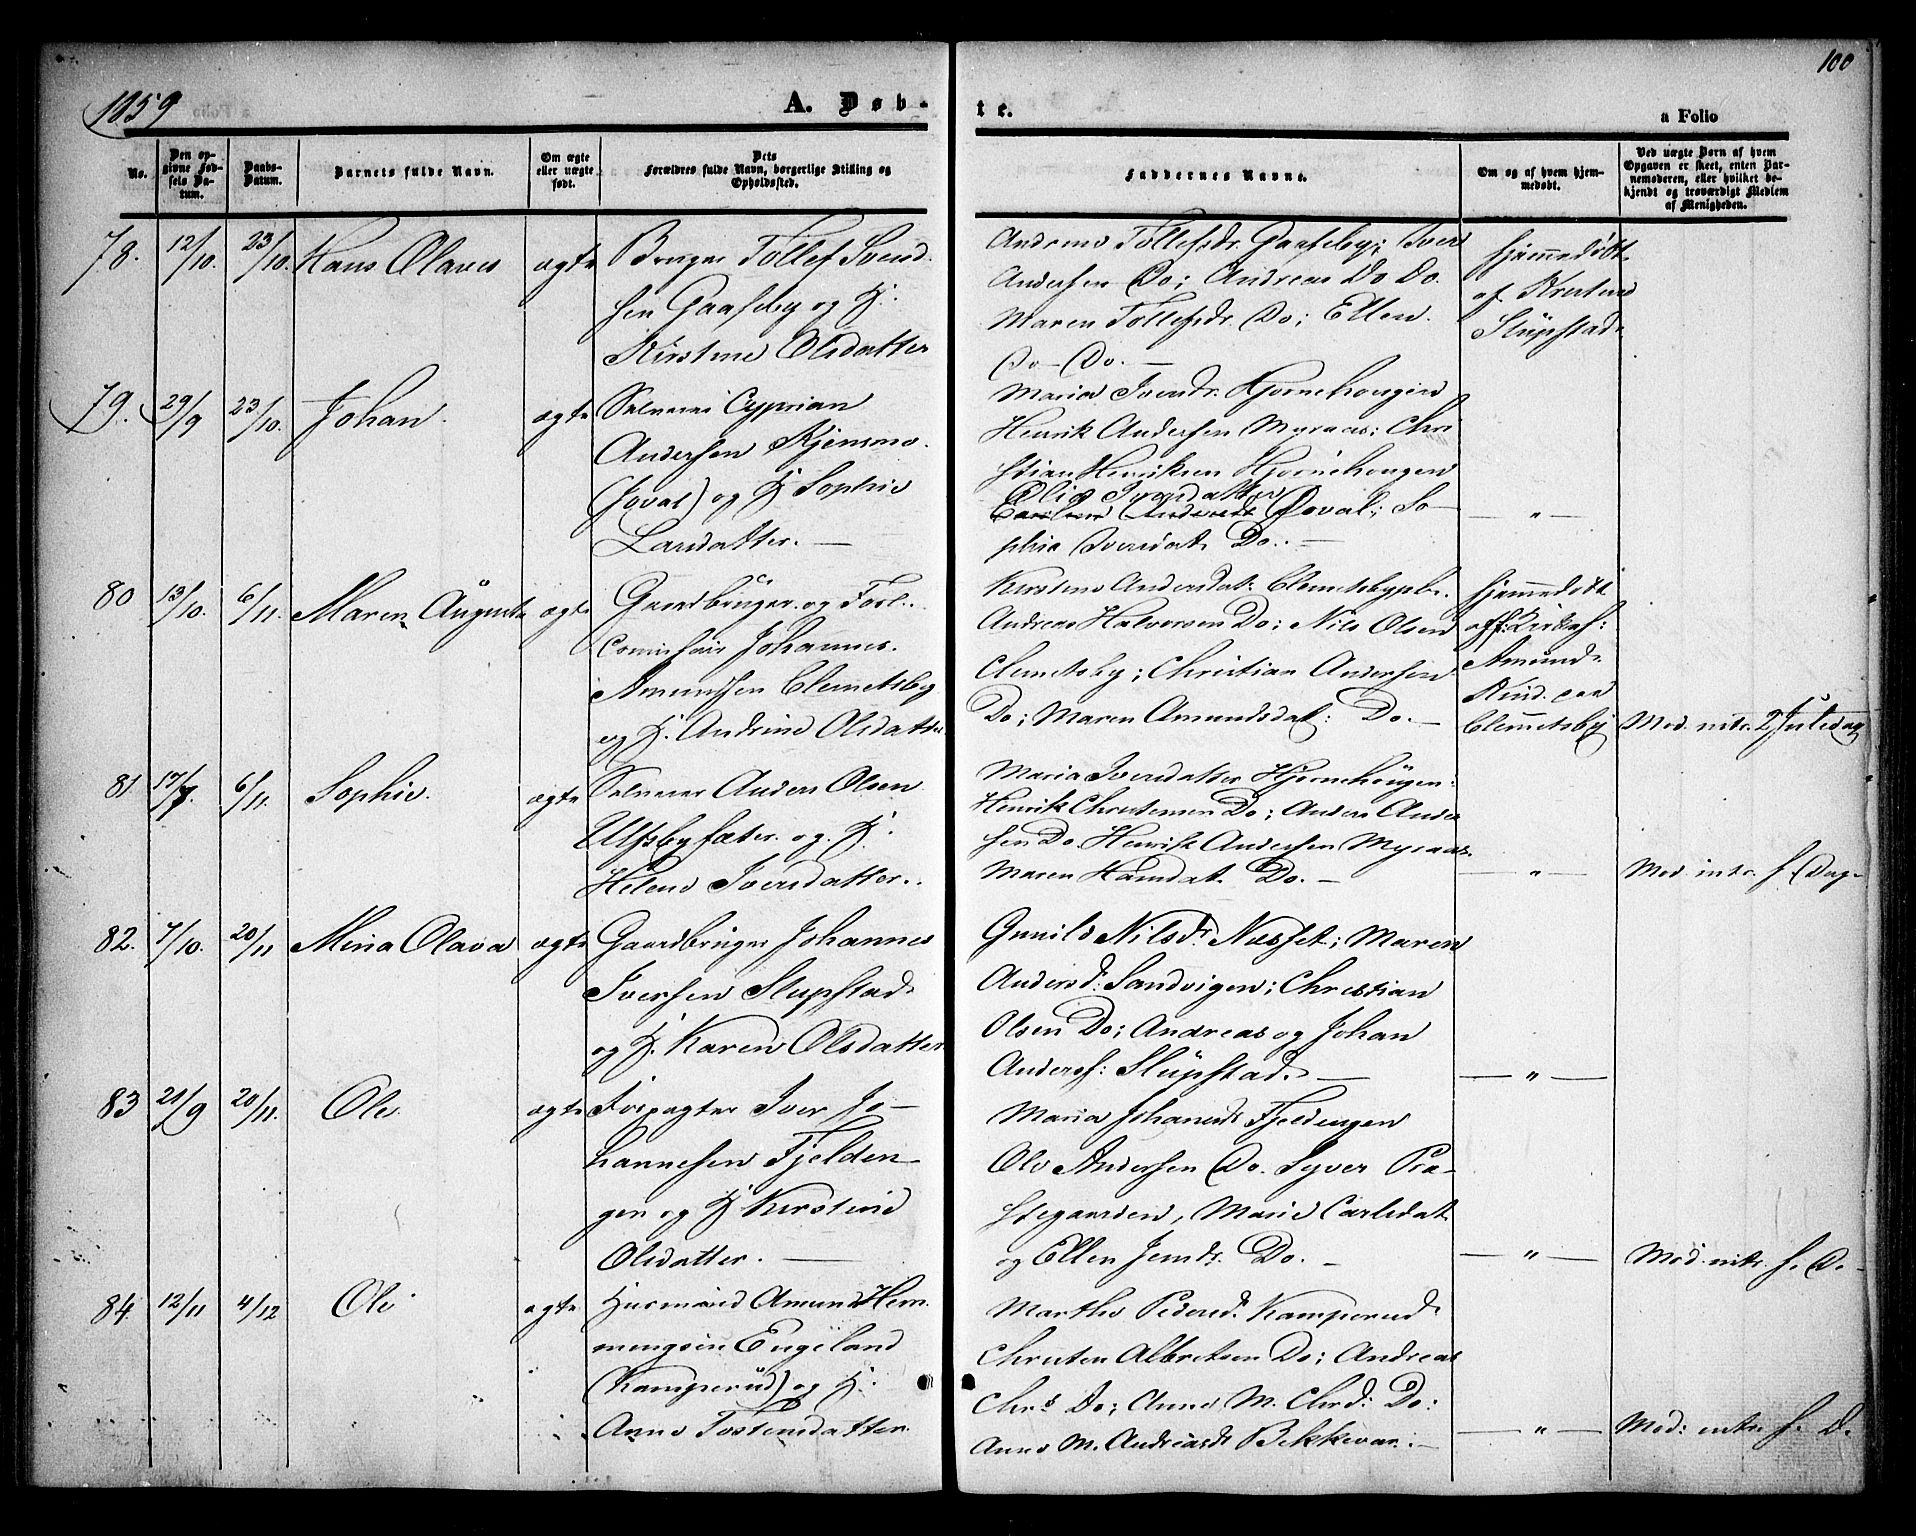 100
1859
A. Døb-
te.
a Folio
No.
Den op-
givne Fød-
sels Da-
tum.
Daabs-
Datum.
Barnets fulde Navn.
Om ægte
eller uægte
født.
Dets
Forældres fulde Navn, borgerlige Stilling og
Opholdssted.
Faddernes Navne.
Om og af hvem hjem-
medøbt.
Ved uægte Børn af hvem
Opgaven er skeet, enten Bar-
nemoderen, eller hvilket be-
kjendt og troværdigt Medlem
af Menigheden.
78. 12/10. 23/10. Hans Olaves ægte
Bruger Tollef Svend
sen Gaaseby og K.
Kirstine Olsdatter
Andrine Tollefsdr. Gaaseby; Iver
Andersen Do; Andreas Do Do.
Maren Tollefsdr. Do; Ellen
Do – Do. —
hjemmedøbt
af Kirstine
Slupstad
79. 29/9 23/10. Johan. ægte
Selveier Cyprian
Andersen Kjensmo
(Joval) og K Sophie
Larsdatter. —
Maria Iversdr. Hjørnehougen
Henrik Andersen Myraas; Chri
stian Henriksen Hjørnehougen
Olia Iversdatter
Joval; So-
phia Iversdat. Do. —
— " —
80 13/10. 6/11. Maren Auguste ægte
Gaardbruger og Forl.
Comissair Johannes
Amundsen Clemetsby
og K. Andrine Olsdatter
Kirstine Andersdat: Clemetsby
Andreas Halversen Do; Nils Olsen
Clemetsby; Christian Andersen
Do; Maren Amundsdat: Do. —
hjemmedøbt
af
Amund
Rud paa
Clemmetsby
Mod. intr. 2 Juledag
81 17/7. 6/11. Sophie. ægte
Selveier Anders Olsen
Ulfsbysæter og K.
Helene Iversdatter.
Maria Iversdatter Hjørnehougen:
Henrik Christensen Do; Anders Ander
sen Do Henrik Andersen Myraas
Maren Hansdat. Do. —
— " —
Mod. intr. s. Dag.
82. 7/10. 20/11 Mina Olava ægte
Gaardbruger Johannes
Iversen Slupstad
og K. Karen Olsdatter
Gunild Nilsdr. Næsset; Maren
Andersd: Sandvigen; Christian
Olsen Do; Andreas og Johan
Anders: Slupstad. —
— " —
83 21/9 20/11. Ole ægte
Forpagter Iver Jo-
hannesen Fjelden-
gen og K Kirstine
Olsdatter. —
Maria Johannesd. Fjeldengen
Ole Andersen Do. Syver Præ-
stegaarden, Marie Carlsdat
og Ellen Jensdr. Do. —
— " —
Mod. intr. s. D.
84. 12/11 4/12 Ole ægte
Husmand Amund Hem
mingsen Engeland
(Kamperud) og K.
Anne Tostensdatter.
Marthe Pedersd. Kamperud
Christen Albretsen Do; Andreas
Chrs Do; Anne M. Chrd: Do:
Anne M. Andreasdr Bekkevar. —
— " —
Mod: intr. s. D.